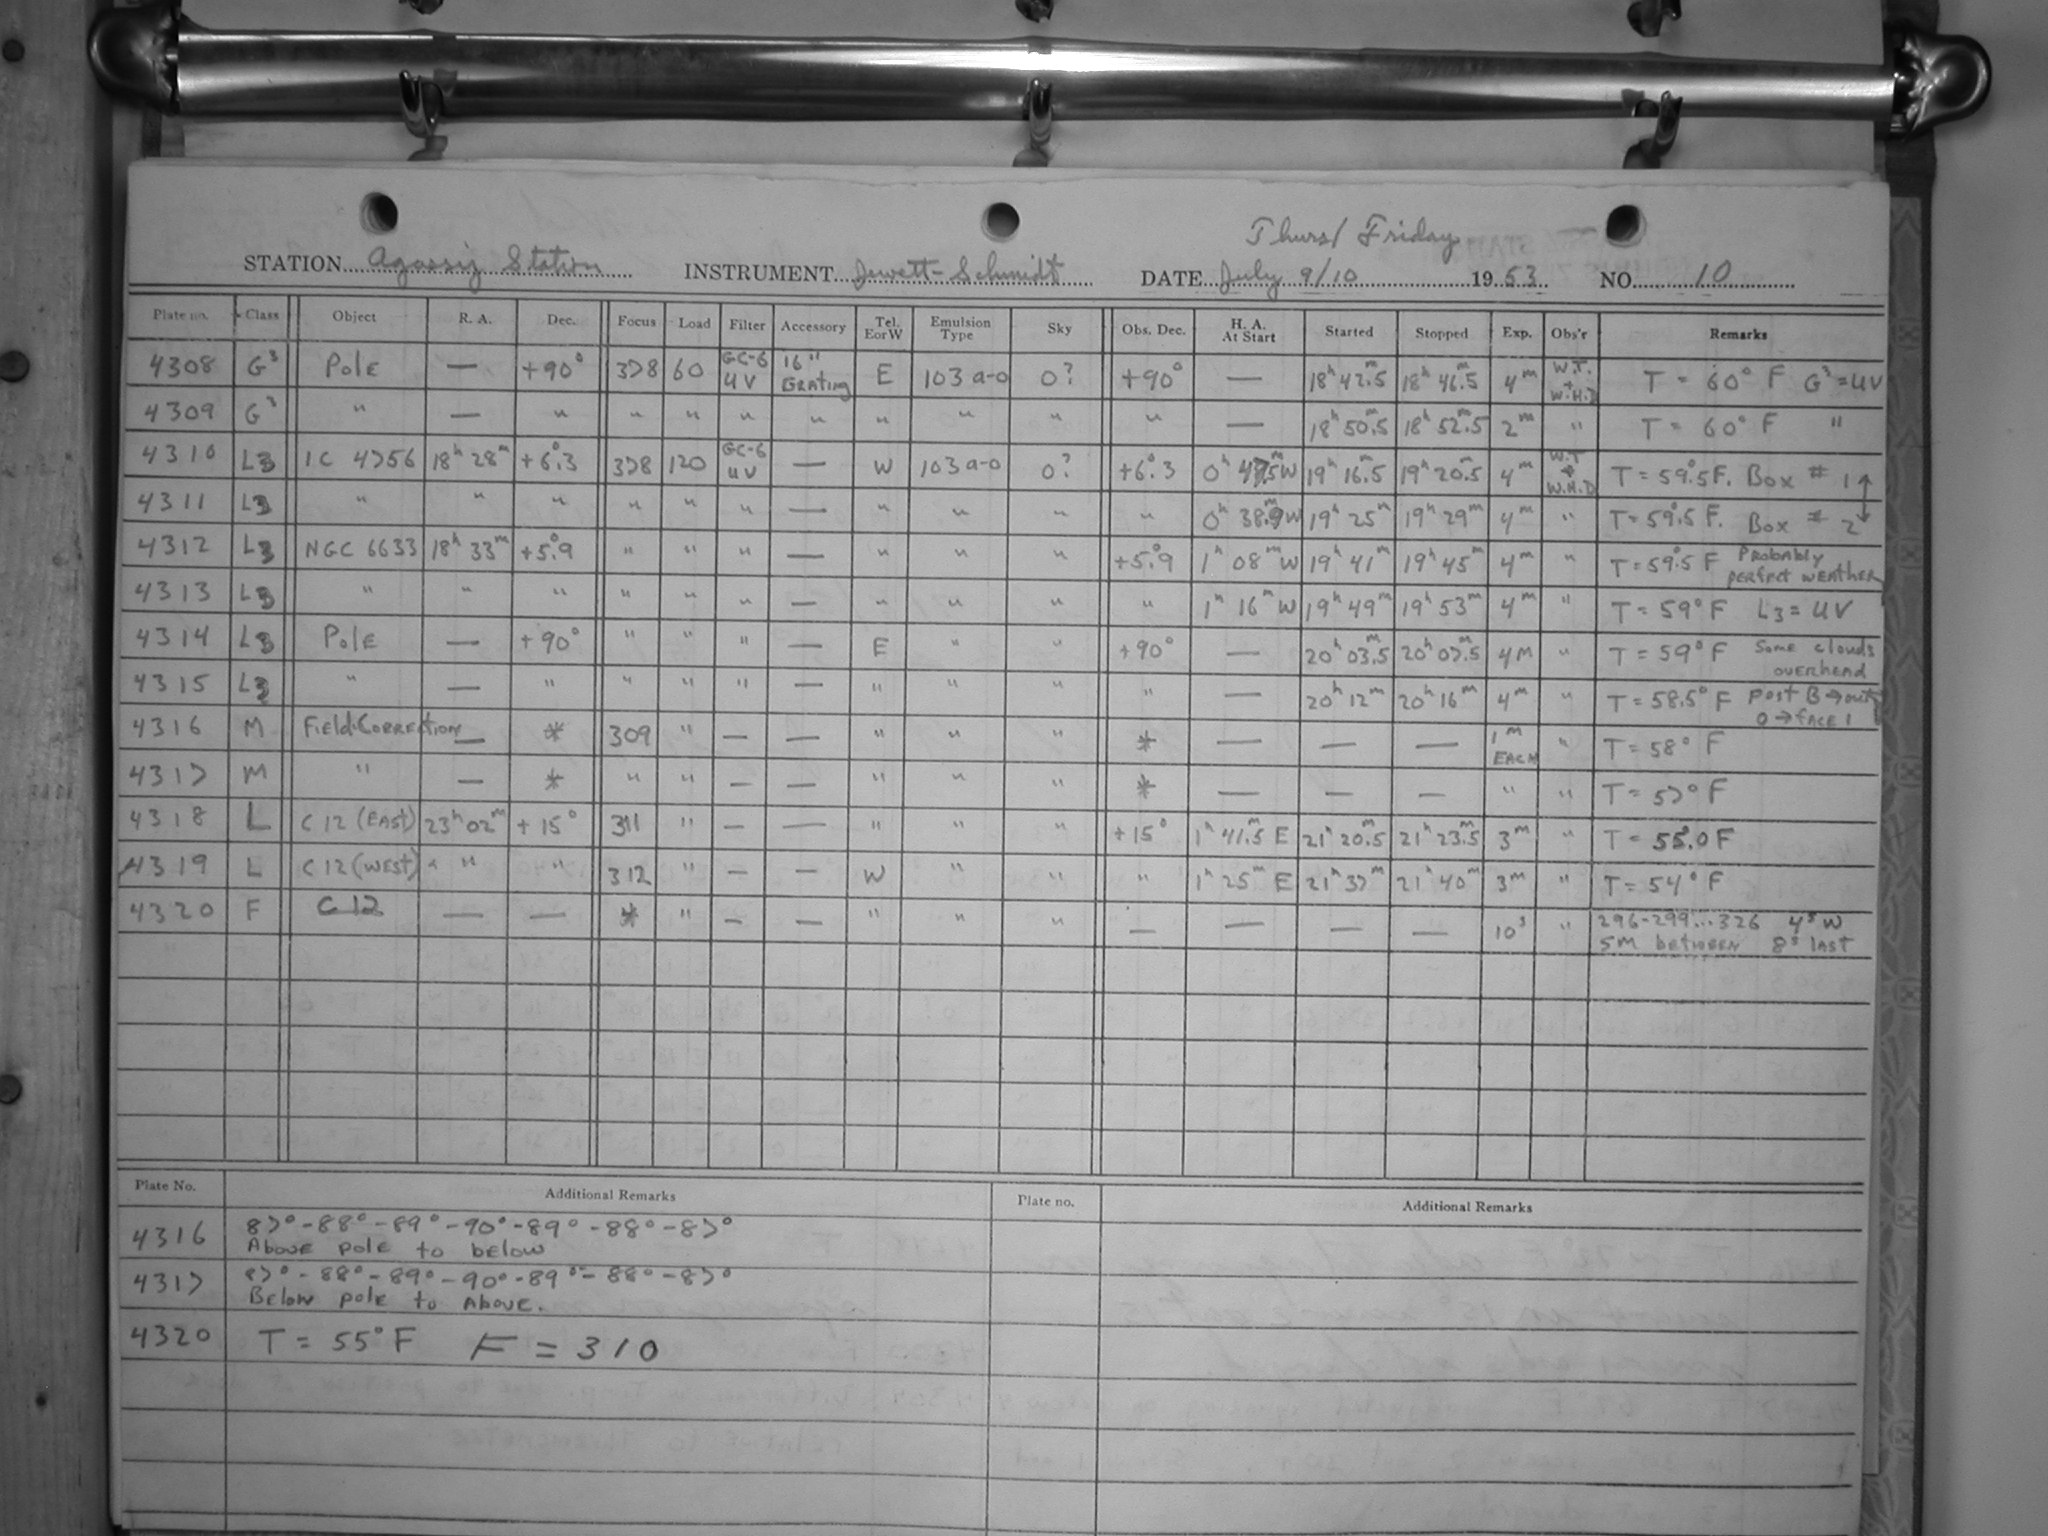 Thurs/ Friday
STATION Agassiz Station INSTRUMENT Jewett-Schmidt DATE July 9/10 1953 NO. 10
Plate no. Class Object R. A. Dec. Focus Load Filter Accessory Tel. E or W Emulsion Type Sky Obs. Dec. H. A. At Start Started Stopped Exp. Obs'r Remarks
4308 G³ Pole — +90° 378 60 GC-6 UV 16" Grating E 103 a-o 0? +90° — 18ʰ 42.5ᵐ 18ʰ 46.5ᵐ 4ᵐ W.T. + W.H.D T = 60° F G³=UV
4309 G³ " — " " " " " " " " " — 18ʰ 50.5ᵐ 18ʰ 52.5ᵐ 2ᵐ " T = 60° F "
4310 L3 IC 4756 18ʰ 28ᵐ +6°.3 378 120 GC-6 UV — W 103 a-o 0? +6°.3 0ʰ 47.5ᵐ W 19ʰ 16.5ᵐ 19ʰ 20.5ᵐ 4ᵐ W.T + W.H.D T = 59°.5 F. Box # 1
4311 L3 " " " " " " — " " " " 0ʰ 38.9 W 19ʰ 25ᵐ 19ʰ 29ᵐ 4ᵐ " T = 59°.5 F. Box # 2
4312 L3 NGC 6633 18ʰ 33ᵐ +5°.9 " " " — " " " +5°.9 1ʰ 08ᵐ W 19ʰ 41ᵐ 19ʰ 45ᵐ 4ᵐ " T = 59°.5 F Probably perfect weather
4313 L3 " " " " " " — " " " " 1ʰ 16ᵐ W 19ʰ 49ᵐ 19ʰ 53ᵐ 4ᵐ " T = 59° F L3 = UV
4314 L3 Pole — +90° " " " — E " " +90° — 20ʰ 03.5ᵐ 20ʰ 07.5ᵐ 4M " T = 59° F Some clouds overhead
4315 L3 " — " " " " — " " " " — 20ʰ 12ᵐ 20ʰ 16ᵐ 4ᵐ " T = 58.5° F post B → out 0 → face 1
4316 M Field-Correction — * 309 " — — " " " * — — — 1ᵐ EACH " T = 58° F
4317 M " — * " " — — " " " * — — — " " T = 57° F
4318 L C 12 (EAST) 23ʰ 02ᵐ +15° 311 " — — " " " +15° 1ʰ 41.5ᵐ E 21ʰ 20.5ᵐ 21ʰ 23.5ᵐ 3ᵐ " T = 55.0 F
4319 L C 12 (WEST) " " 312 " — — W " " " 1ʰ 25ᵐ E 21ʰ 37ᵐ 21ʰ 40ᵐ 3ᵐ " T = 54° F
4320 F C 12 — — * " — — " " " — — — — 10ˢ " 296-299...326 4ˢ W 5M between 8ˢ last
Plate No. Additional Remarks Plate no. Additional Remarks
4316 87°-88°-89°-90°-89°-88°-87°
Above pole to below
4317 87°-88°-89°-90°-89°-88°-87°
Below pole to Above.
4320 T = 55° F F = 310